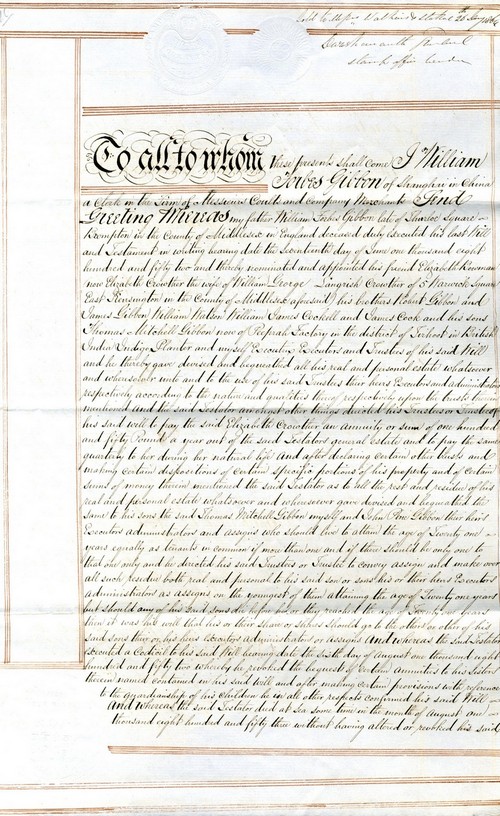 To all to whom these presents shall come I William
Forbes Gibbon of Shanghai in China
a Clerk in the Firm of Messieurs Coutts and company Merchants Send
Greeting Whereas my father William Forbes Gibbon late of Square
Brompton in the County of Middlesex in England deceased duly executed his last Will
and Testament in writing bearing date the seventeenth day of June one thousand eight
hundred and fifty two and thereby nominated and appointed his friend Elizabeth
now Elizabeth Crowther the wife of William George Langrish Crowther of 5 Warwick Square
East Kensington in the County of Middlesex aforesaid his brothers Robert Gibbon and
James Gibbon William Watson William James Cockell and James Cook and his sons
Thomas Mitchell Gibbon now of Factory in the district of Tirhoot in British
India Indigo Planter and myself Executrix Executors and Trustees of his said Will
and he thereby gave devised and bequeathed all his real and personal estate whatsoever
and wheresoever unto and to the use of his said Trustees their heirs Executors and administrators
respectively according to the nature and qualities thereof respectively upon the trusts therein
mentioned And the said Testator amongst other things directed his Trustees or Trustee of
his said will to pay the said Elizabeth Crowther an annuity or sum of one hundred
and fifty Pounds a year out of the said Testators general estate and to pay the same
quarterly to her during her natural life and after declaring certain other trusts and
making certain dispositions of certain specific portions of his property and of certain
sums of money therein mentioned the said Testator as to all the rest and residue of his
real and personal estate whatsoever and wheresoever gave devised and bequeathed the
same to his sons the said Thomas Mitchell Gibbon myself and John Gibbon their heirs
Executors administrators and assigns who should live to attain the age of Twenty one
years equally as tenants in common if more than one and if there should be only one to
that one only and he directed his said Trustees or Trustee to convey assign and make over
all such residue both real and personal to his said son or sons his or their heirs Executors
administrators or assigns on the youngest of them attaining the age of Twenty one years
but should any of his said sons die before he or they reached the age of Twenty one years
then it was his will that his or their share or shares should go to the other or others of his
said sons their or his heirs Executors administrators or assigns And whereas the said Testator
executed a Codicil to his said Will bearing date the sixth day of august one thousand eight
hundred and fifty two whereby he revoked the bequest of certain annuities to his Sisters
therein named contained in his said will and after making certain provisions with reference
to the guardianship of his children he in all other respects confirmed his said Will
And whereas the said Testator died at sea some time in the month of august one
thousand eight hundred and fifty three without having altered or revoked his said